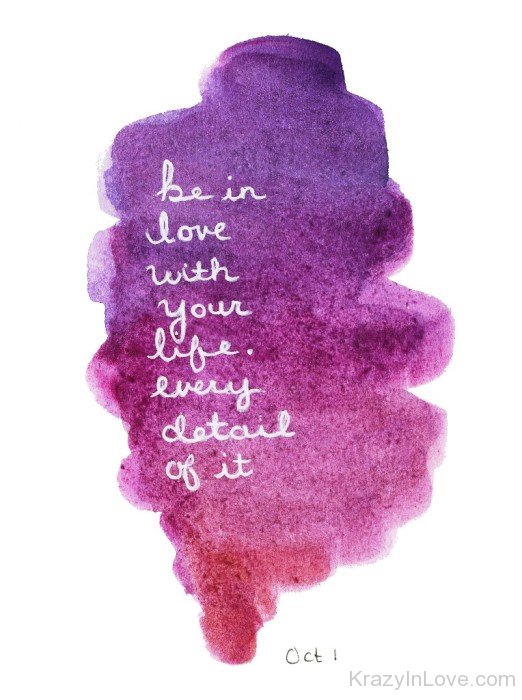 be in
love
with
your
life.
every
detail
of it
Oct 1
KrazyInLove.com